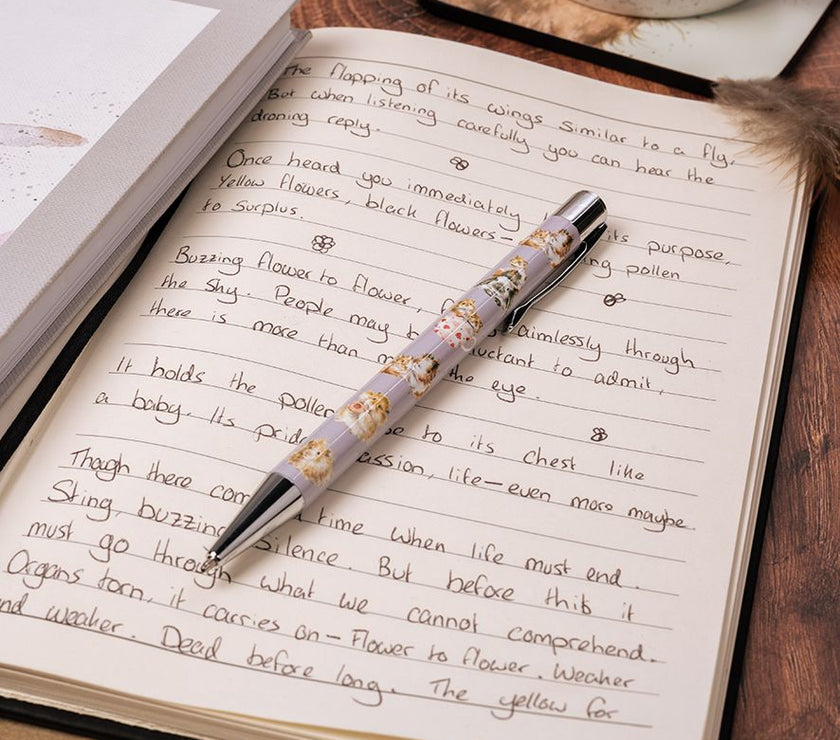 The flapping of its wings similar to a fly.
But when listening carefully you can hear the
droning reply.
Once heard you immediately its purpose,
Yellow flowers, black flowers— ing pollen
to surplus.
Buzzing flower to flower, aimlessly through
the sky. People may b luctant to admit,
there is more than m the eye.
It holds the pollen to its chest like
a baby. Its pride assion, life—even more maybe.
Though there com a time when life must end.
Sting, buzzing silence. But before this it
must go through what we cannot comprehend.
Organs torn, it carries on— Flower to flower. Weaker
and weaker. Dead before long. The yellow for